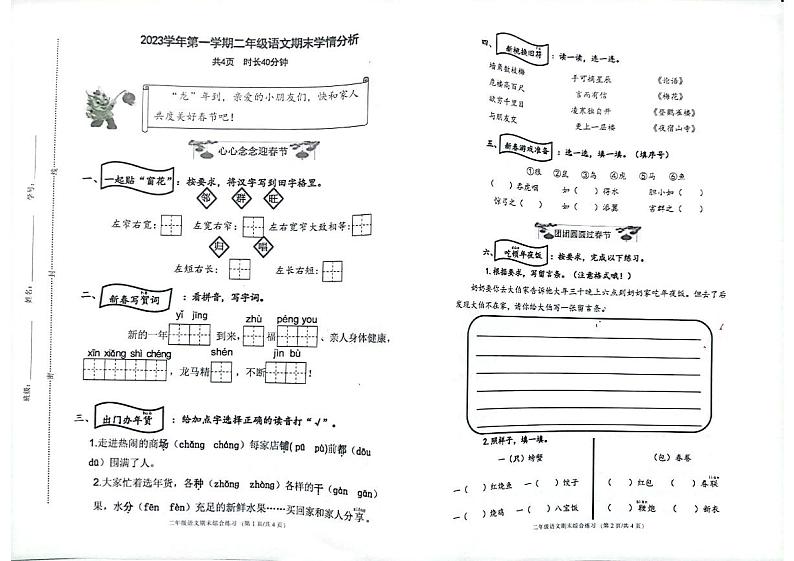 2023学年第一学期二年级语文期末学情分析
共4页 时长40分钟
“龙”年到，亲爱的小朋友们，快和家人
共度美好春节吧！
心心念念迎春节
一、一起贴“窗花”：按要求，将汉字写到田字格里。
邻 群 旺
左窄右宽： 左宽右窄： 左右宽窄大致相等：
归 唱
左短右长： 左长右短：
二、新春写贺词：看拼音，写字词。
hè
yǐ jīng zhù péng you
新的一年 到来， 福 、亲人身体健康，
xīn xiǎng shì chéng shén jìn bù
，龙马精 ，不断 ！
三、出门办年货：给加点字选择正确的读音打“√”。
huò
1.走进热闹的商场（chǎng cháng）每家店铺（pū pù）前都（dōu
dū）围满了人。
2.大家忙着选年货，各种（zhǒng zhòng）各样的干（gàn gān）
果，水分（fēn fèn）充足的新鲜水果……买回家和家人分享。
二年级语文期末综合练习（第1页/共4页）
学号：
姓名：
班级：
线
封
密
四、新桃换旧符：读一读，连一连。
fú
墙角数枝梅 手可摘星辰 《论语》
危楼高百尺 言而有信 《梅花》
欲穷千里目 凌寒独自开 《登鹳雀楼》
与朋友交 更上一层楼 《夜宿山寺》
五、新春游戏准备：选一选，填一填。（填序号）
①狼 ②鼠 ③鸟 ④虎 ⑤马 ⑥鱼
（ ）吞虎咽 如（ ）得水 胆小如（ ）
惊弓之（ ） 如（ ）添翼 害群之（ ）
团团圆圆过春节
六、吃顿年夜饭：按要求，完成以下练习。
dùn
1.根据要求，写留言条。（注意格式哦！）
奶奶要你去大伯家告诉他大年三十晚上六点到奶奶家吃年夜饭。但去了后
发现大伯不在家，请你给大伯写一张留言条。
2.照样子，填一填。
一（只）螃蟹 （包）春卷
一（ ）红烧鱼 一（ ）饺子 （ ）红包 （ ）春联
lián
一（ ）烧鸡 一（ ）八宝饭 （ ）鞭炮 （ ）新衣
biān
二年级语文期末综合练习（第2页/共4页）